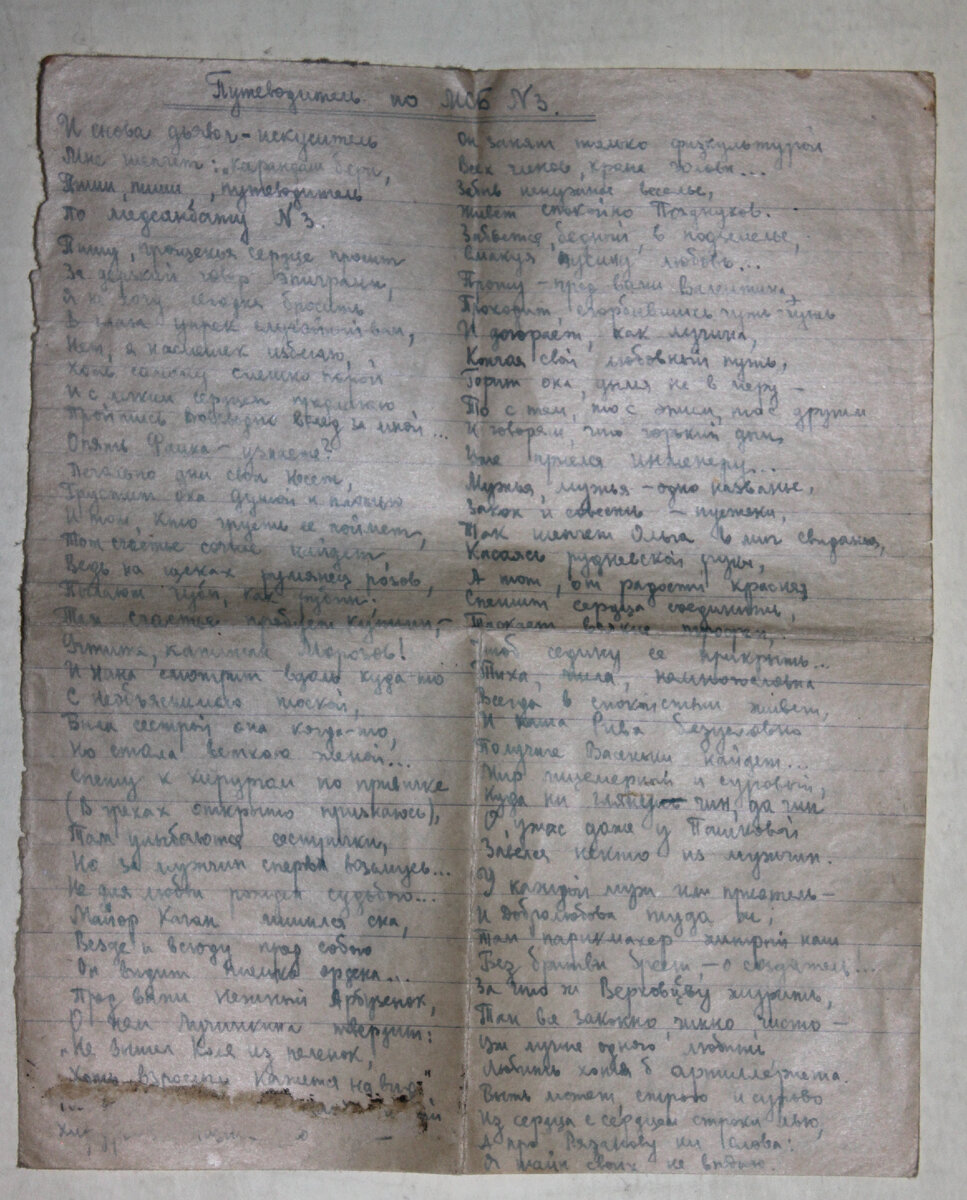 Путеводитель по МСБ N 3.
И снова дьявол-искуситель
Мне шепчет: „Карандаш бери,
Пиши, пиши, путеводитель
По медсанбату N 3.
Пишу, прощенья сердце просит
За дерзкий говор эпиграмм,
Я не хочу сегодня бросить
В глаза упрек случайный вам,
Нет, я насмешек избегаю,
Хоть самому смешно порой
И с легким сердцем
вслед за мной...
Опять Фаина – узнаете?
Печально дни свои несет,
Грустит она душой и плотью
И тот, кто грусть ее поймет,
Тот счастье сочное найдет,
Ведь на щеках румянец розов,
Пылают губы, как
Тем счастье
капитан Морозов!
И Нина смотрит вдаль куда-то
С неизъяснимою тоской,
Была сестрой она когда-то,
Но стала женой...
Спешу к хирургам по привычке
(В грехах открыто признаюсь),
Там улыбаются сестрички,
Но за мужчин сперва возьмусь...
Не для любви рожден судьбою...
Майор Каган лишился сна,
Везде и всюду пред собою
Он видит ордена...
Пред вами нежный
О нем Лучинкина твердит:
„Не вышел Коля из пеленок,
Хоть взрослым кажется на вид"
Он занят только физкультурой
Всех членов, кроме головы...
Забыв ненужное веселье,
Живет спокойно
Забьется, бедный, в подземелье,
Смакуя любовь...
Прошу – пред вами Валентина,
Проходит, сгорбившись чуть-чуть
И догорает, как лучина,
Кончая свой любовный путь,
Горит она, дымя не в меру –
То с тем, то с этим, то с другим
И говорят, что горький дым
Уже приелся инженеру...
Мужья, мужья – одно названье,
Закон и совесть – пустяки,
Так шепчет Ольга в миг свиданья,
Касаясь рудневской руки,
А тот, от радости краснея
Спешит сердца соединить,
Таскает всякие
Чтоб седину ее прикрыть...
Тиха, мила, немногословна
Всегда в спокойствии живет,
И наша Рива безусловно
Получше Васеньки найдет...
Мир лицемерный и суровый,
Куда ни глянь чин, да чин
О, ужас даже у Пашковой
Завелся некто из мужчин.
У каждой муж или приятель –
И Добролюбова туда ж,
Там парикмахер хитрый наш
Без бритвы бреет, – о создатель!...
За что ж Верховцеву журить,
Там все законно, чинно, чисто –
Уж лучше одного любить,
Любить хотя б артиллериста.
Быть может, старого и сурово
Из сердца с сердцем строки лью,
А про Рязанову ни слова:
Я тайн своих не выдаю.